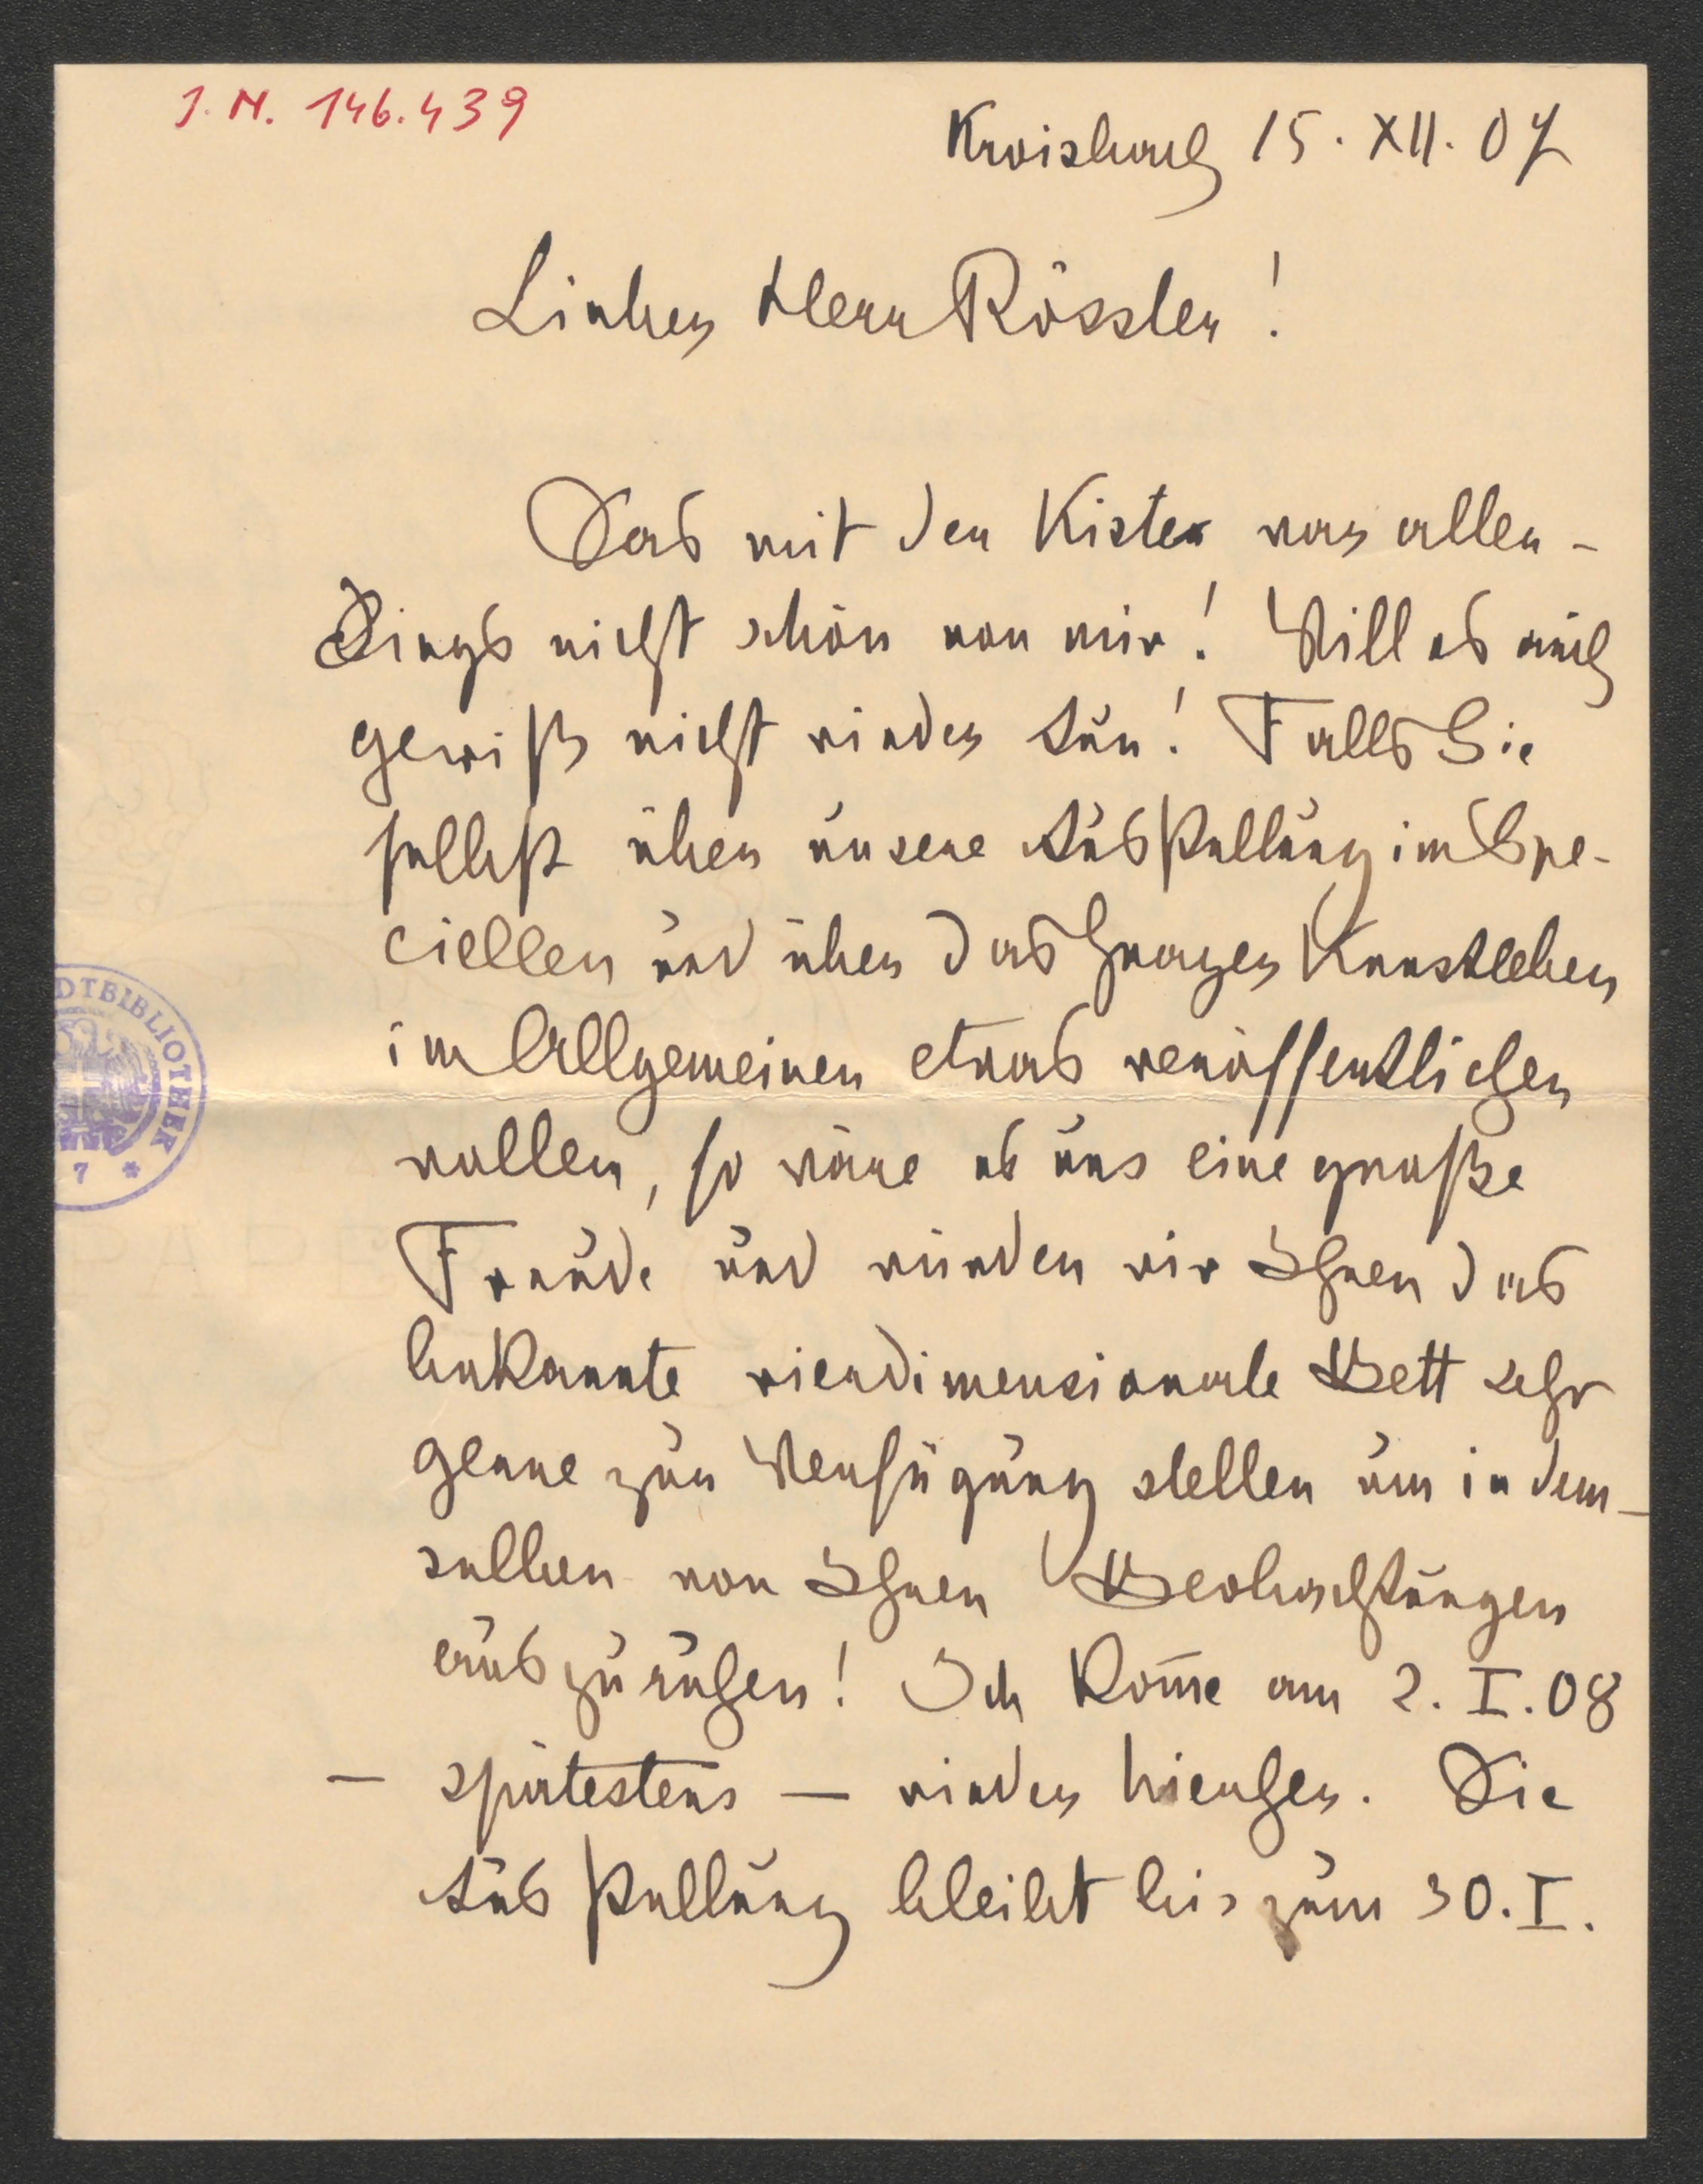 J. N. 146.439
Kroisbach 15. XII. 07
Lieber Herr Rössler!
Das mit den Kisten war aller-
dings nicht schön von mir! Will es auch
gewiß nicht wieder tun! Falls Sie
selbst über unsere Ausstellung im Spe-
ciellen und über das Grazer Kunstleben
im Allgemeinen etwas veröffentlichen
wollen, so wäre es uns eine große
Freude und würden wir Ihnen das
bekannte vierdimensionale Bett sehr
gerne zur Verfügung stellen um in dem-
selben von Ihren Beobachtungen
auszuruhen! Ich kom̅e am 2. I. 08
– spätestens – wieder hierher. Die
Ausstellung bleibt bis zum 30. I.
DTBIBLIOTHEK
7 *